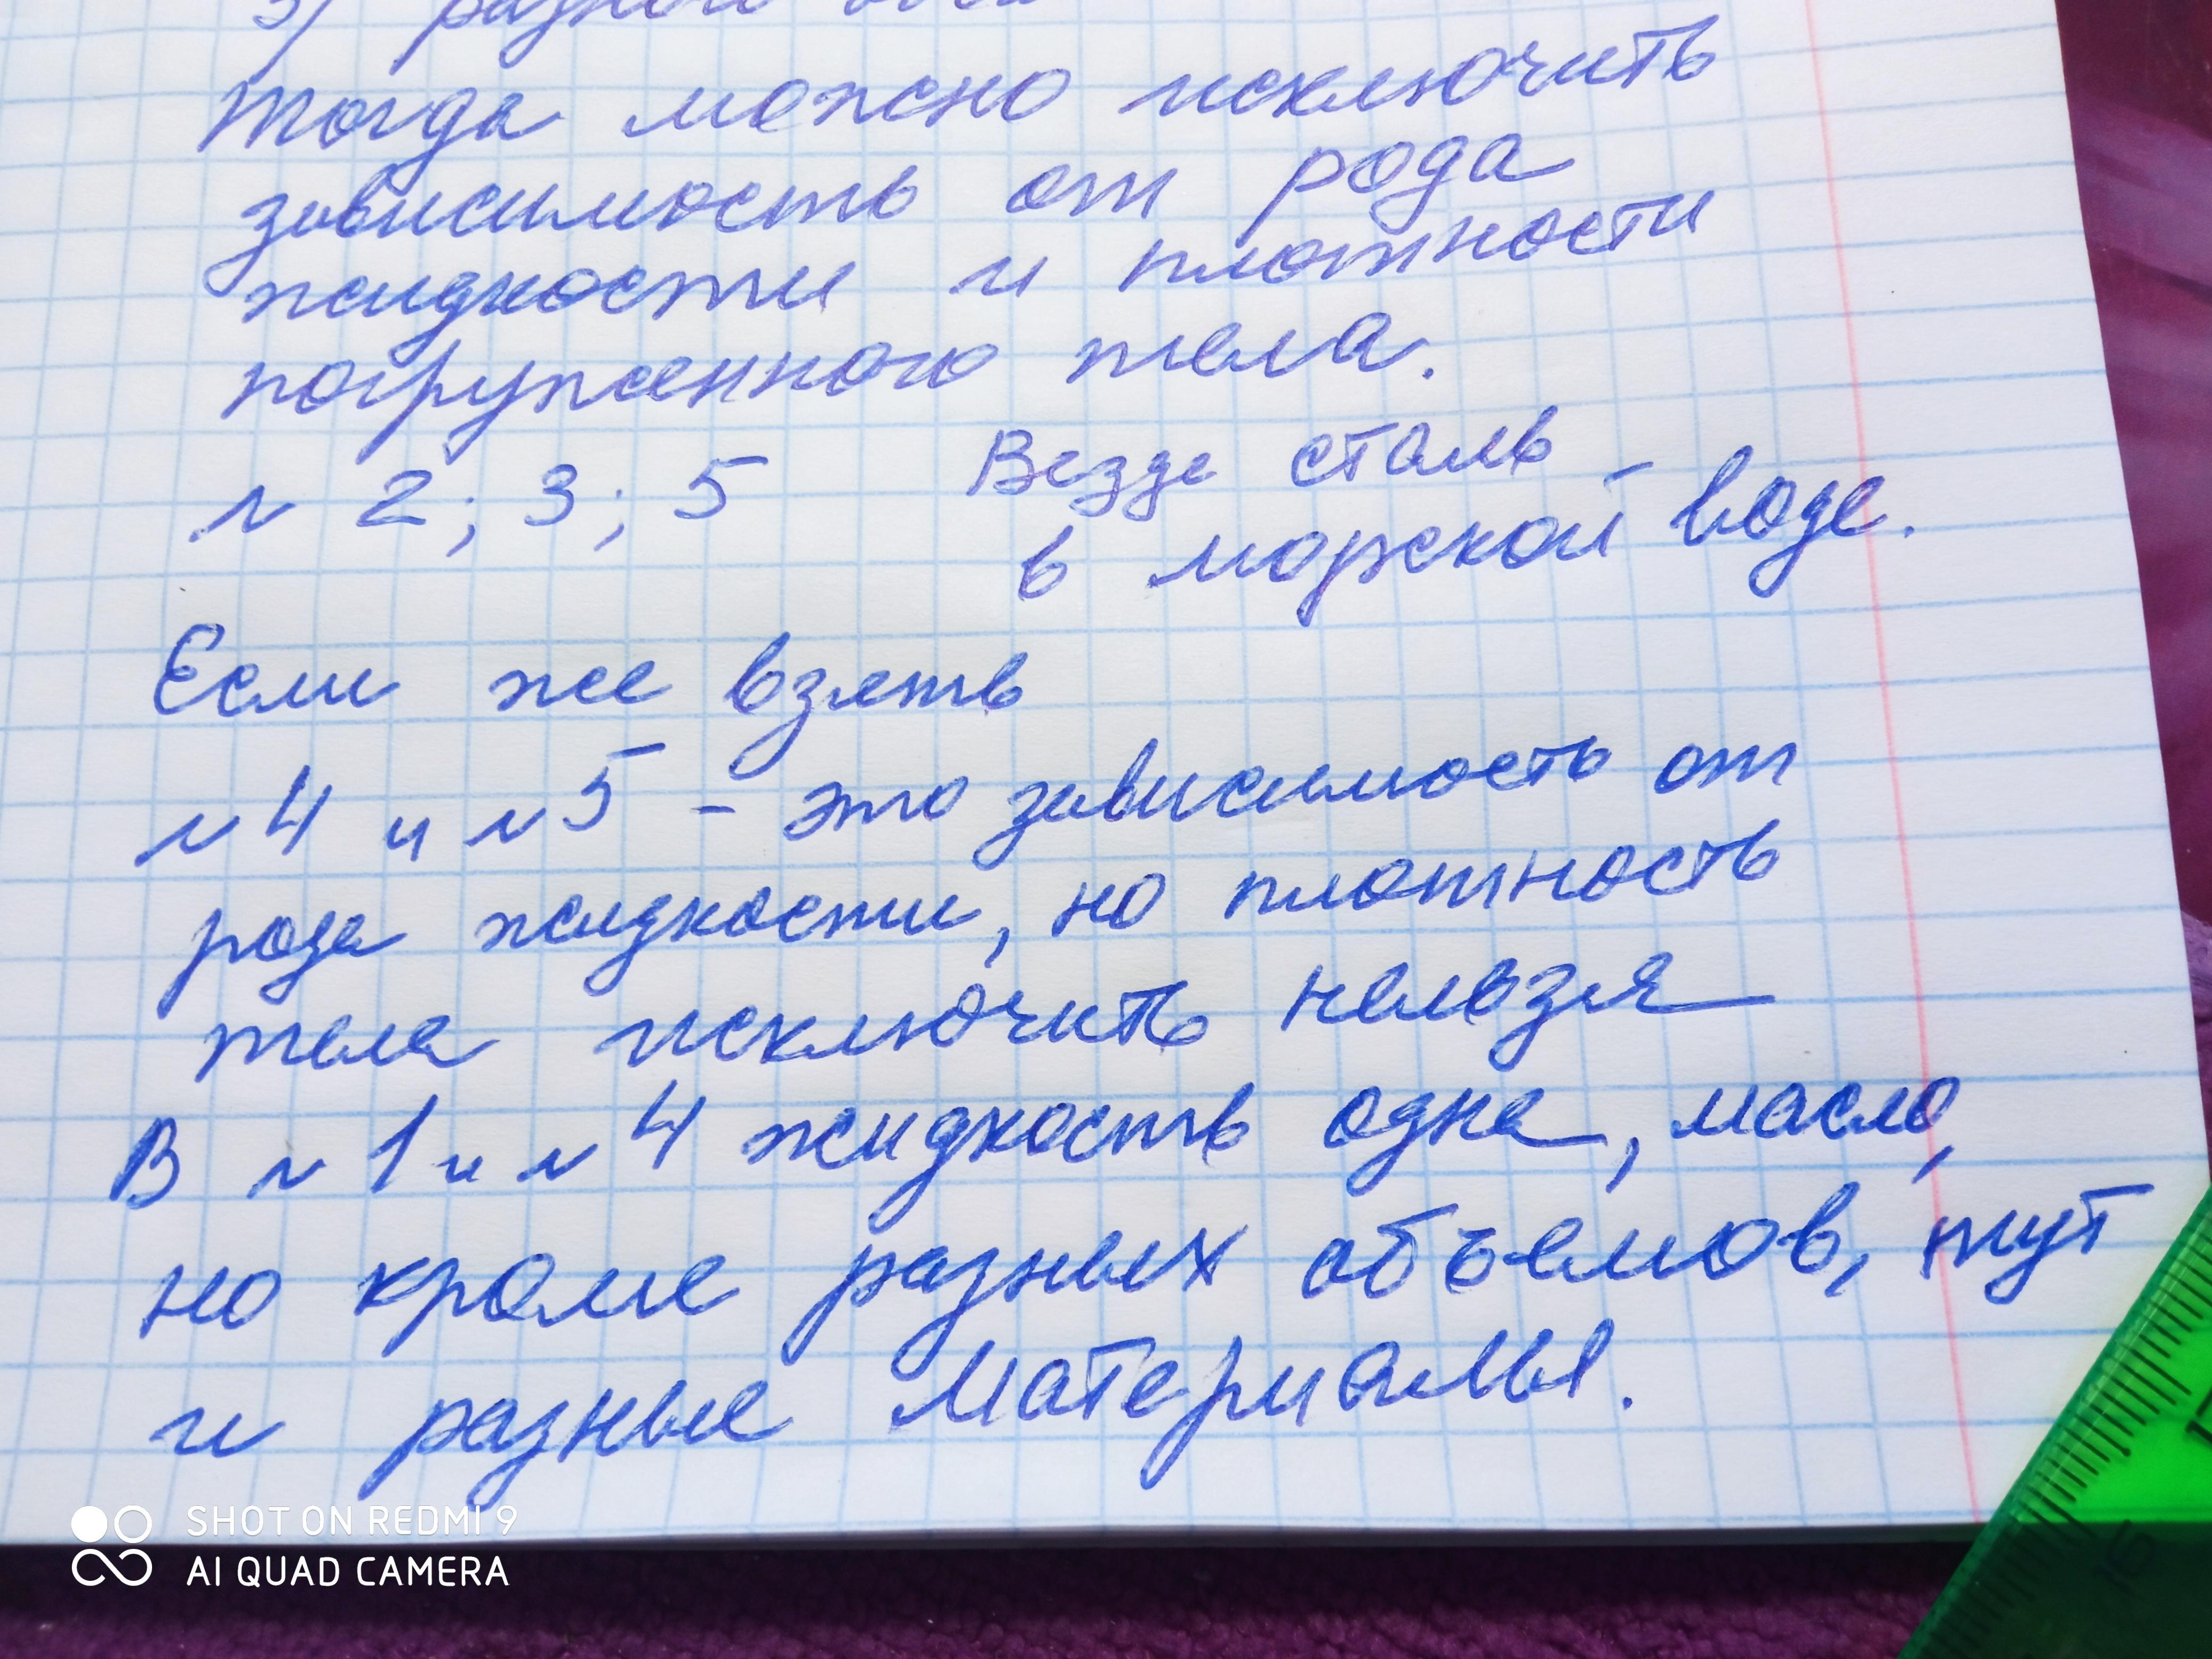 3) разного
Тогда можно исключить
зависимость от рода
жидкости и плотности
погруженного тела.
№ 2; 3; 5 Везде сталь
в морской воде.
Если же взять
№ 4 и № 5 - это зависимость от
рода жидкости, но плотность
тела исключить нельзя
В № 1 и № 4 жидкость одна, масло,
но кроме разных объемов, тут
и разные материалы.
SHOT ON REDMI 9
AI QUAD CAMERA